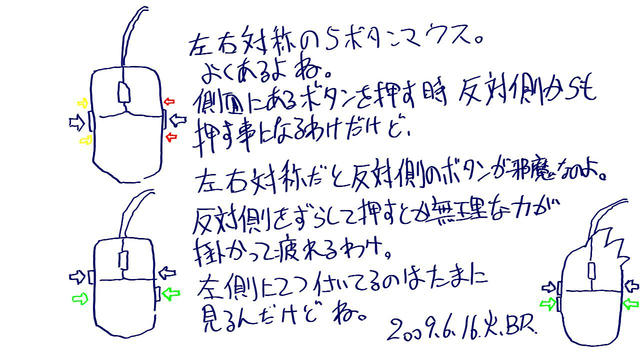 左右対称の5ボタンマウス。
よくあるよね。
側面にあるボタンを押す時 反対側からも
押す事になるわけだけど、
左右対称だと反対側のボタンが邪魔なのよ。
反対側をずらして押すとか無理な力が
掛かって疲れるわけ。
左側に2つ付いてるのはたまに
見るんだけどね。
2009.6.16.火.BR.